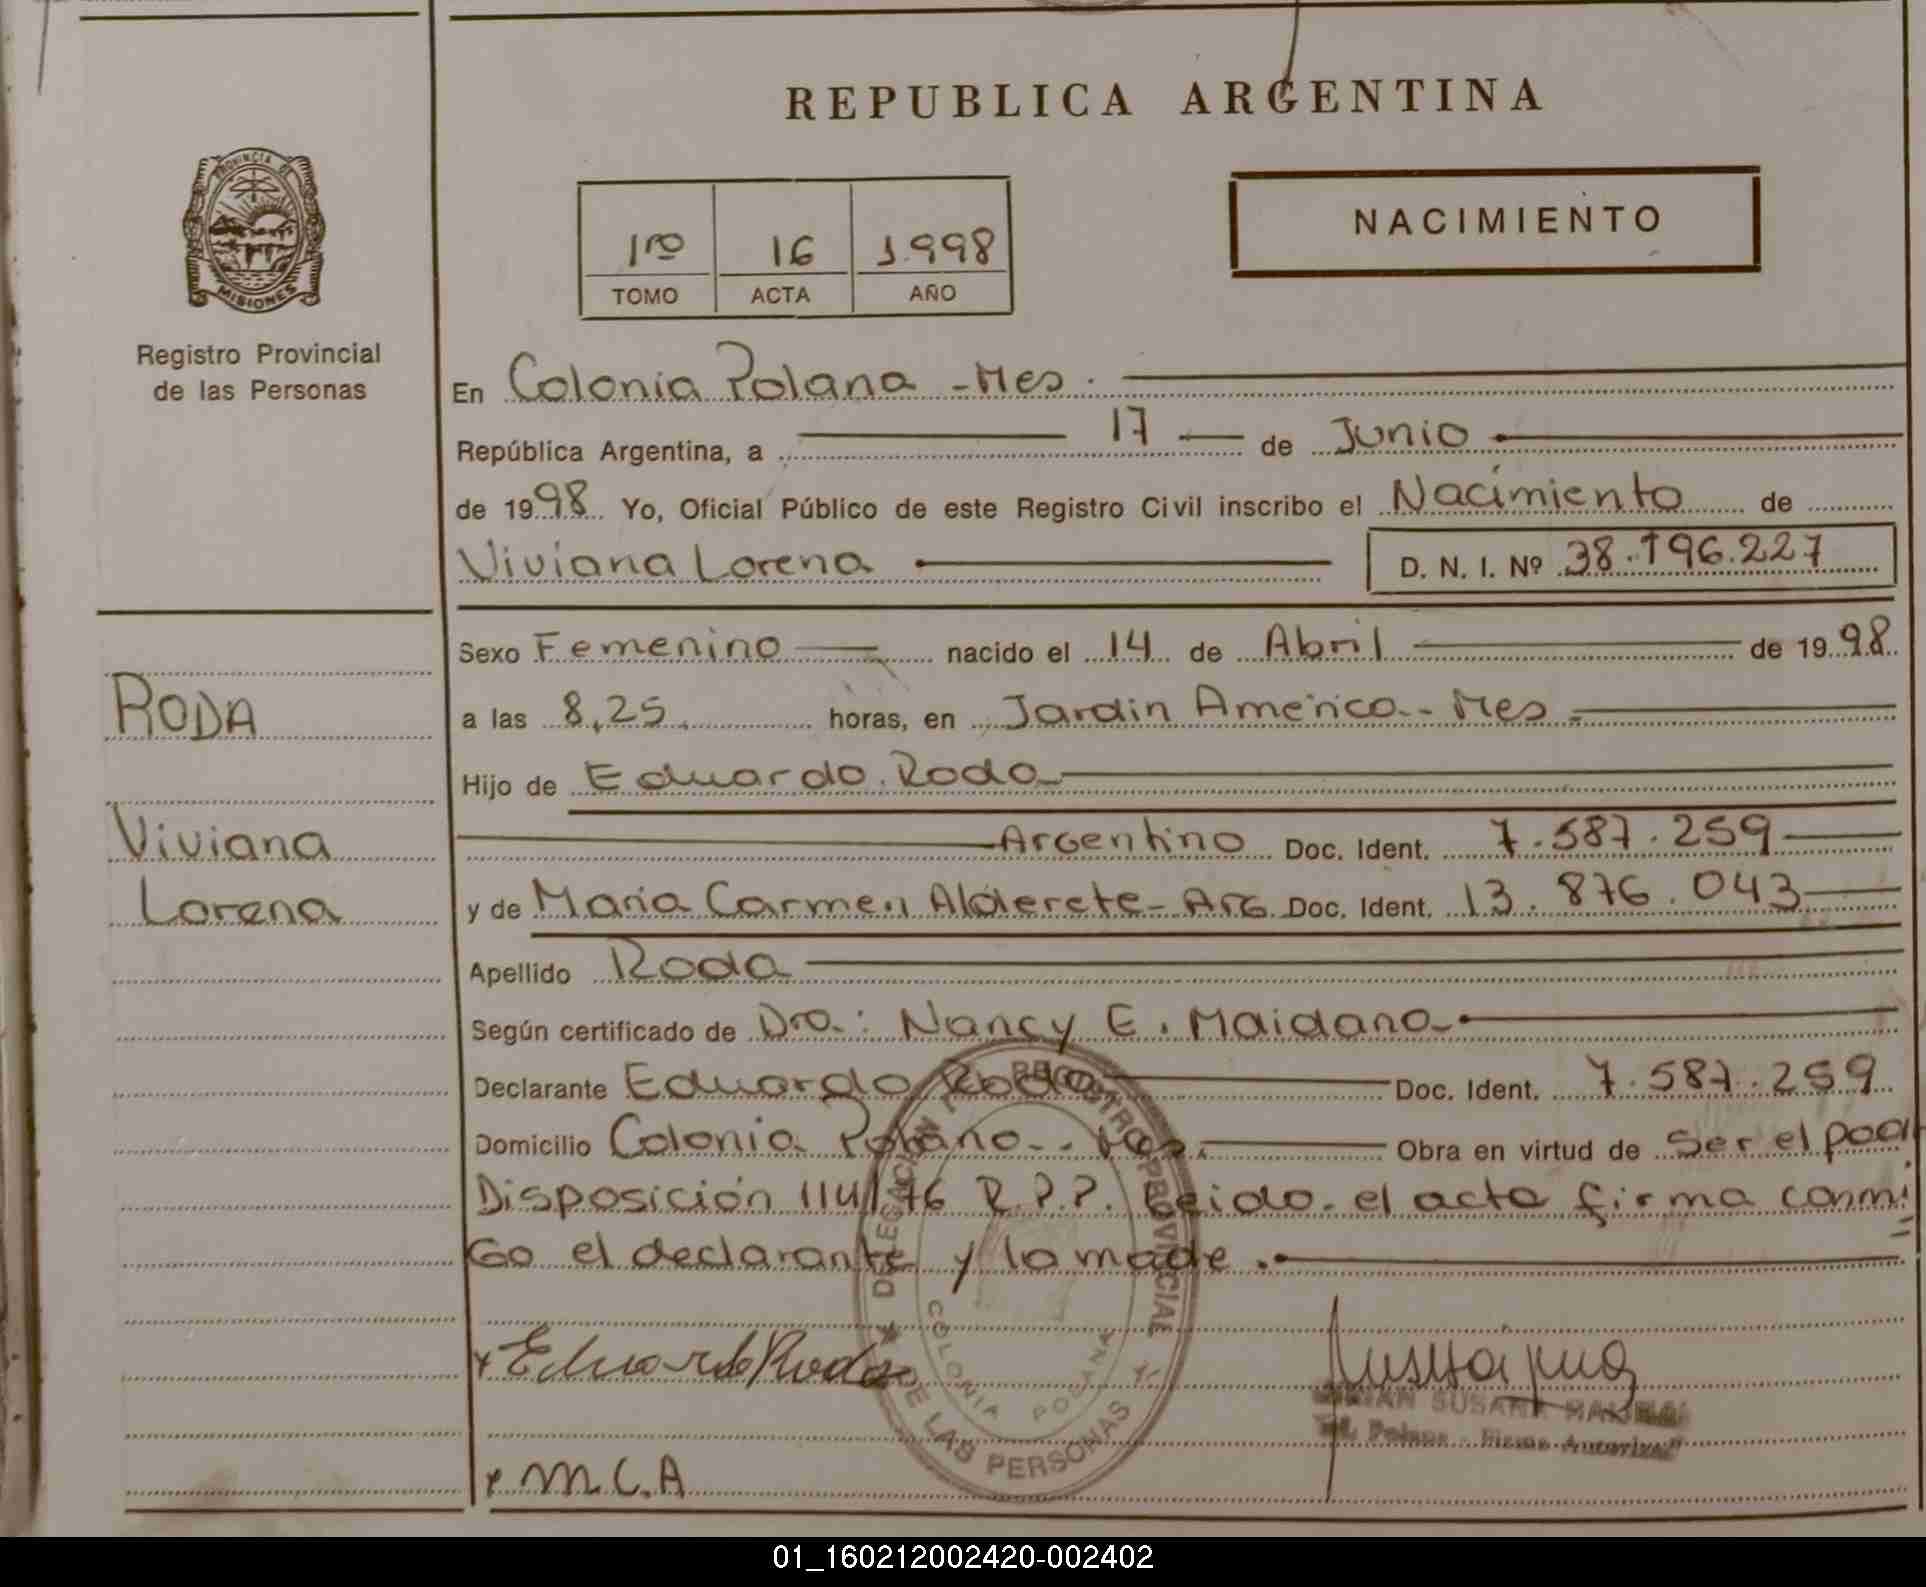 REPUBLICA ARGENTINA
PROVINCIA DE
MISIONES
Registro Provincial
de las Personas
1ro 16 1.998
TOMO ACTA AÑO
NACIMIENTO
En Colonia Polana - Mes.
República Argentina, a 17 de Junio
de 1998 Yo, Oficial Público de este Registro Civil inscribo el Nacimiento de
Viviana Lorena D. N. I. Nº 38.196.227
Sexo Femenino nacido el 14 de Abril de 1998
a las 8,25 horas, en Jardin América - Mes
Hijo de Eduardo Roda
Argentino Doc. Ident. 7.587.259
y de Maria Carmen Alderete - Arg Doc. Ident. 13.876.043
Apellido Roda
Según certificado de Dra.: Nancy E. Maidana
Declarante Eduardo Roda Doc. Ident. 7.587.259
Domicilio Colonia Polana - Mes. Obra en virtud de Ser el padr
Disposición 114/76 R.P.P. Leido el acta firma conmi
Go el declarante y la made.
RODA
Viviana
Lorena
DELEGACION REGISTRO PROVINCIAL
DE LAS PERSONAS
COLONIA POLANA
x Eduardo Roda
SUSANA
Polana - Firma
x M.C.A
01_160212002420-002402